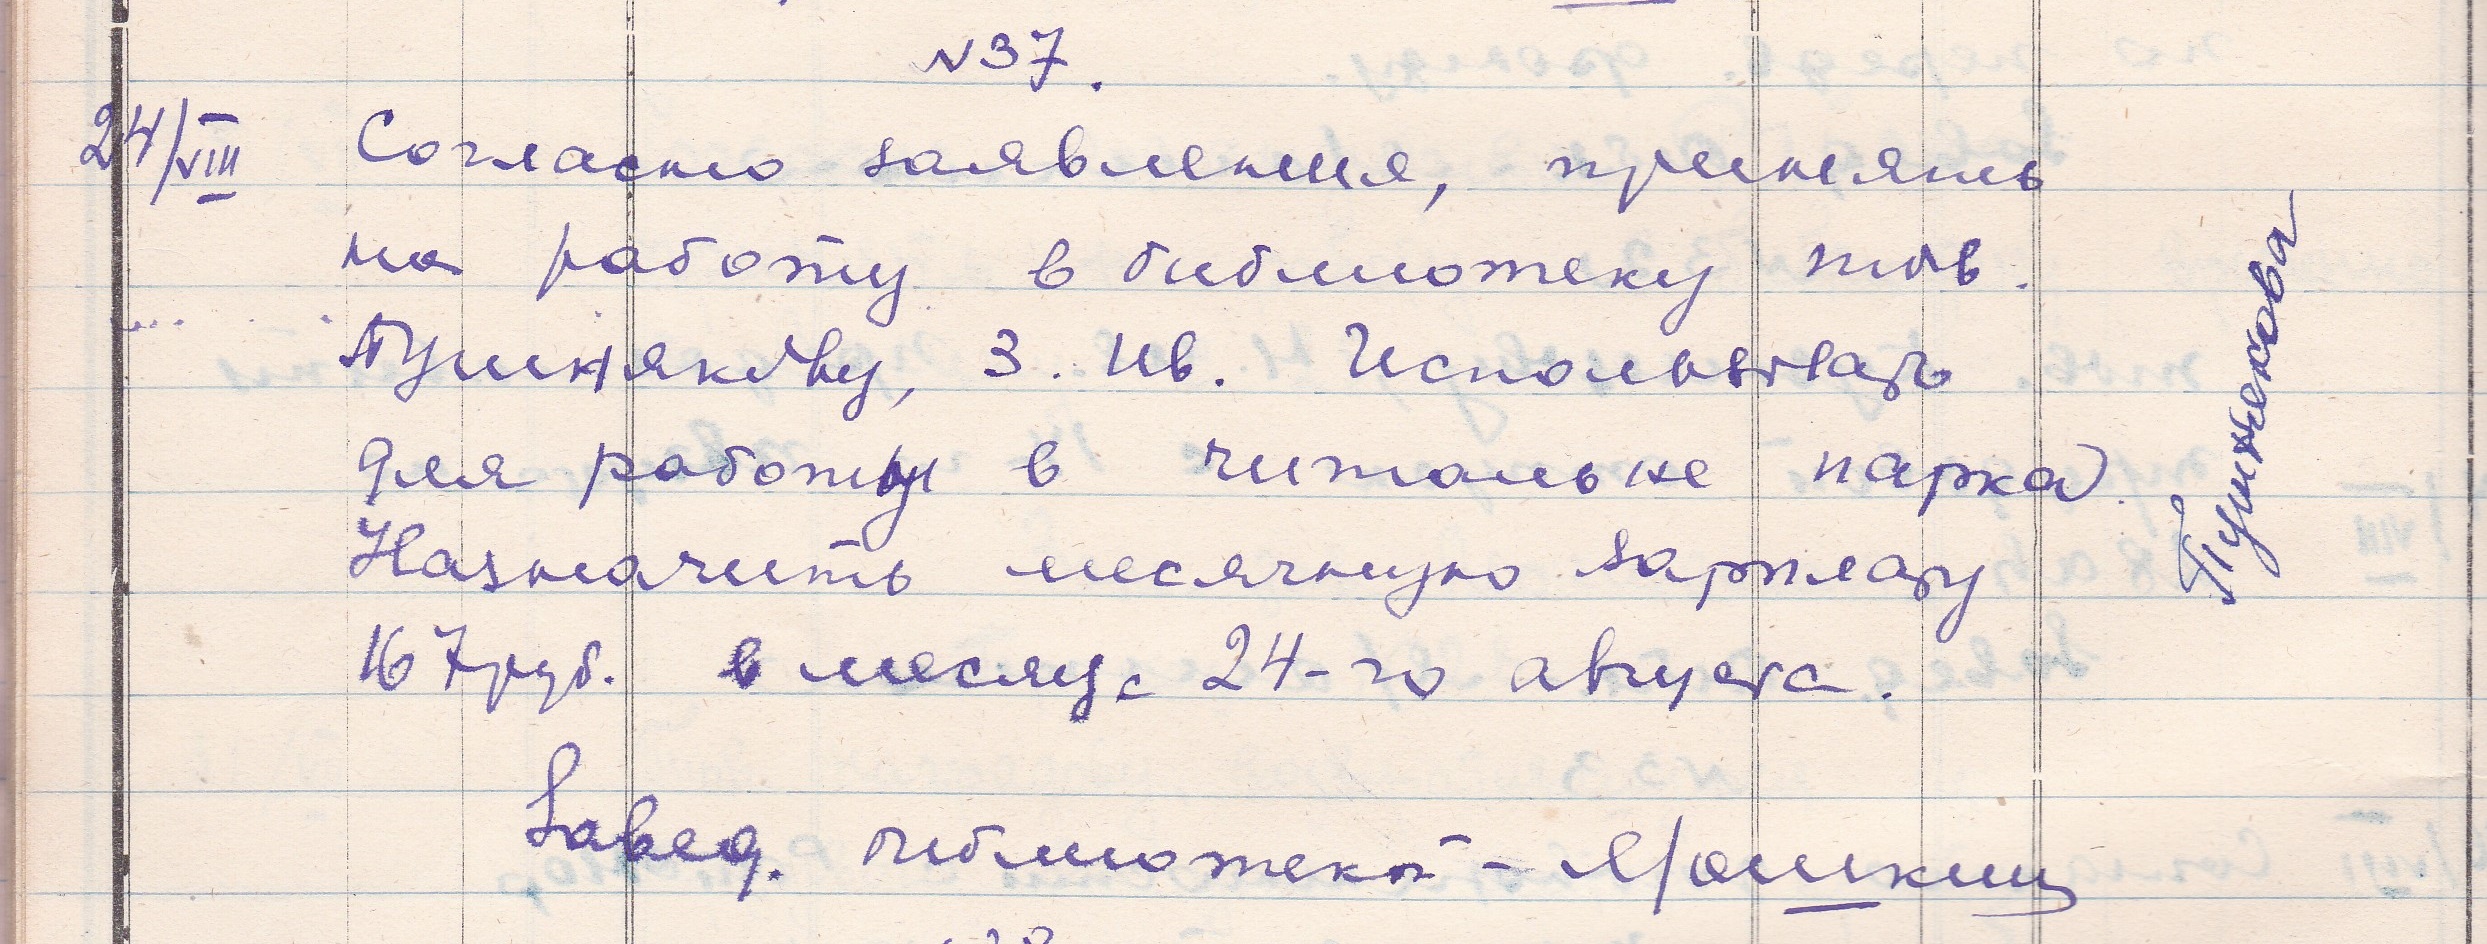 №37.
24/VIII Согласно заявления, принять
на работу в библиотеку тов.
Пушнякову, З. Ив. Использовать
для работы в читальне парка.
Назначить месячную зарплату
167 руб. в месяц с 24-го августа.
Завед. библиотекой -
Пушнякова